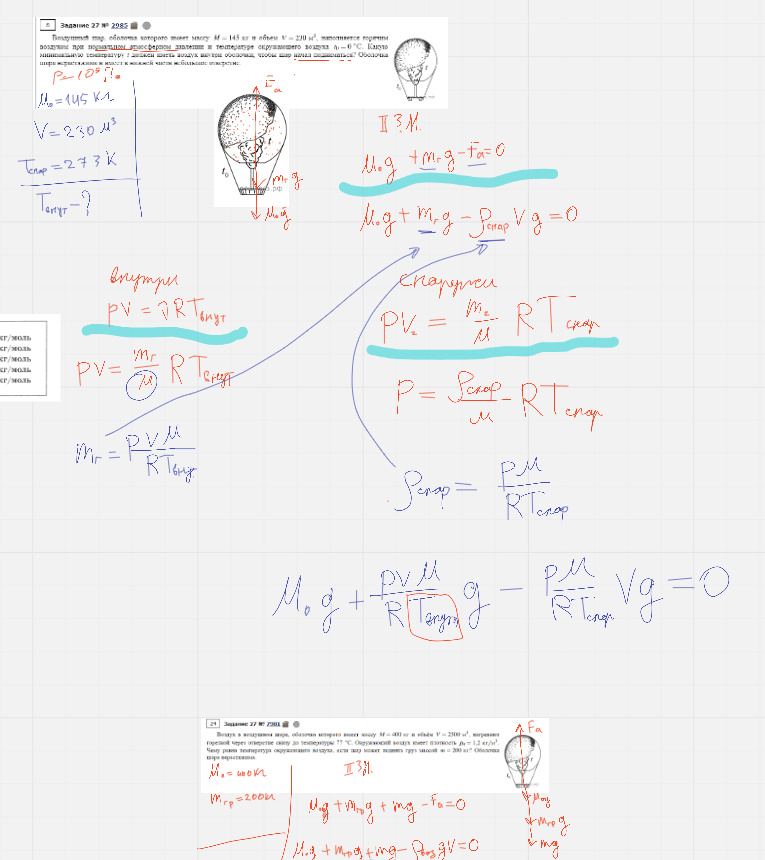 5 Задание 27 № 2985
Воздушный шар, оболочка которого имеет массу M = 145 кг и объем V = 230 м³, наполняется горячим
воздухом при нормальном атмосферном давлении и температуре окружающего воздуха t₀ = 0 °C. Какую
минимальную температуру t должен иметь воздух внутри оболочки, чтобы шар начал подниматься? Оболочка
шара нерастяжима и имеет в нижней части небольшое отверстие.
P = 10⁵ Па
M₀ = 145 кг
V = 230 м³
Tснар = 273 К
Tвнут - ?
Fa
t
t₀
mг g
M₀g
t
t₀
II З.Н.
M₀g + mгg - Fa = 0
M₀g + mгg - ρснар V g = 0
внутри
pV = νRTвнут
PV = mг/μ RTвнут
mг = PVμ/RTвнут
снаружи
PV₂ = m₂/μ RTснар
P = ρснар/μ RTснар
ρснар = Pμ/RTснар
кг/моль
кг/моль
кг/моль
кг/моль
кг/моль
M₀g + PVμ/RTвнут g - Pμ/RTснар Vg = 0
24 Задание 27 № 7981
Воздух в воздушном шаре, оболочка которого имеет массу M = 400 кг и объём V = 2500 м³, нагревают
горелкой через отверстие снизу до температуры 77 °C. Окружающий воздух имеет плотность ρ₀ = 1,2 кг/м³.
Чему равна температура окружающего воздуха, если шар может поднять груз массой m = 200 кг? Оболочка
шара нерастяжима.
M₀ = 400 кг
mгр = 200 кг
II З.Н.
M₀g + mгрg + mg - Fa = 0
M₀g + mгрg + mg - ρвоз gV = 0
Fa
M₀g
mгр g
mg